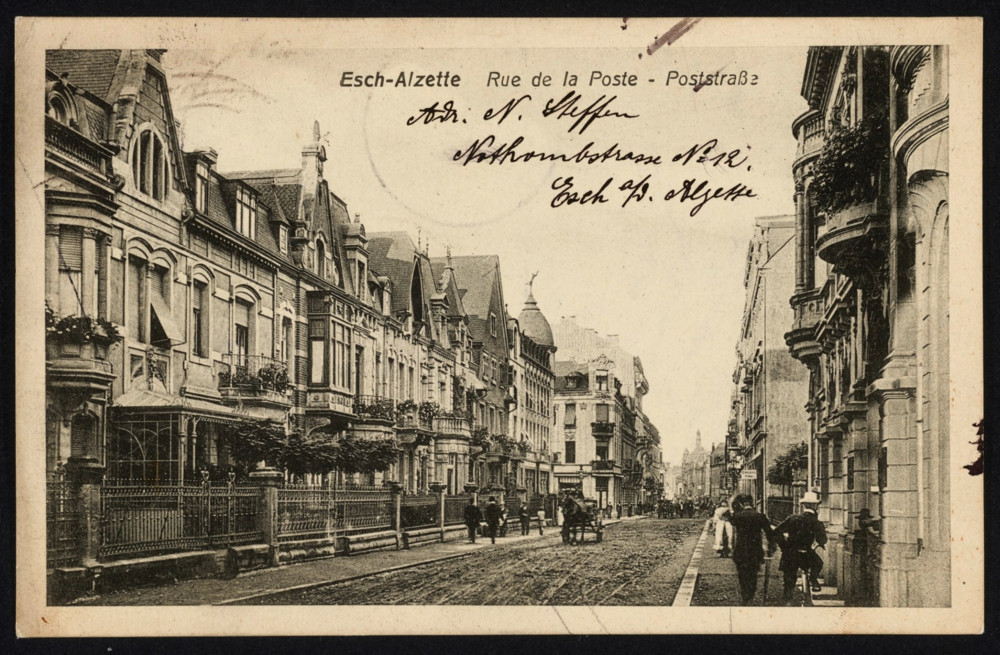 Esch-Alzette Rue de la Poste - Poststraße
Adr. N. Steffen
Nothombstrasse No 12.
Esch a/d. Alzette